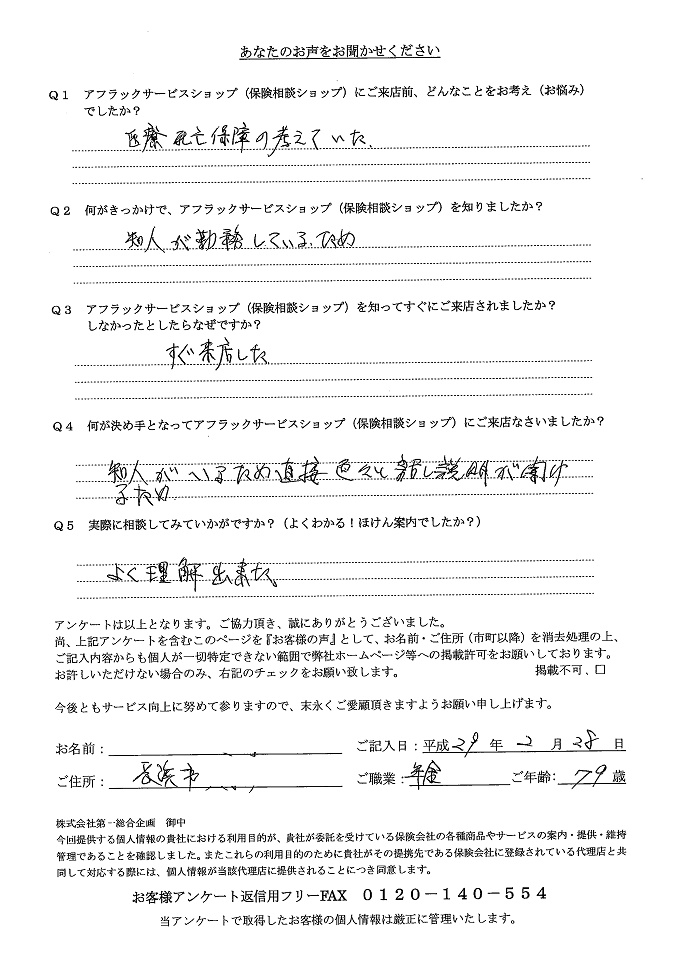 あなたのお声をお聞かせください
Q1 アフラックサービスショップ（保険相談ショップ）にご来店前、どんなことをお考え（お悩み）
でしたか？
医療死亡保障の考えていた.
Q2 何がきっかけで、アフラックサービスショップ（保険相談ショップ）を知りましたか？
知人が勤務しているため
Q3 アフラックサービスショップ（保険相談ショップ）を知ってすぐにご来店されましたか？
しなかったとしたらなぜですか？
すぐ来店した
Q4 何が決め手となってアフラックサービスショップ（保険相談ショップ）にご来店なさいましたか？
知人がいるため直接色々と話し説明が聞け
るため
Q5 実際に相談してみていかがですか？（よくわかる！ほけん案内でしたか？）
よく理解出来た。
アンケートは以上となります。ご協力頂き、誠にありがとうございました。
尚、上記アンケートを含むこのページを『お客様の声』として、お名前・ご住所（市町以降）を消去処理の上、
ご記入内容からも個人が一切特定できない範囲で弊社ホームページ等への掲載許可をお願いしております。
お許しいただけない場合のみ、右記のチェックをお願い致します。 掲載不可、□
今後ともサービス向上に努めて参りますので、末永くご愛顧頂きますようお願い申し上げます。
お名前： ご記入日：平成29年2月28日
ご住所：長浜市 ご職業：年金 ご年齢：79歳
株式会社第一総合企画 御中
今回提供する個人情報の貴社における利用目的が、貴社が委託を受けている保険会社の各種商品やサービスの案内・提供・維持
管理であることを確認しました。またこれらの利用目的のために貴社がその提携先である保険会社に登録されている代理店と共
同して対応する際には、個人情報が当該代理店に提供されることにつき同意します。
お客様アンケート返信用フリーFAX 0120－140－554
当アンケートで取得したお客様の個人情報は厳正に管理いたします。